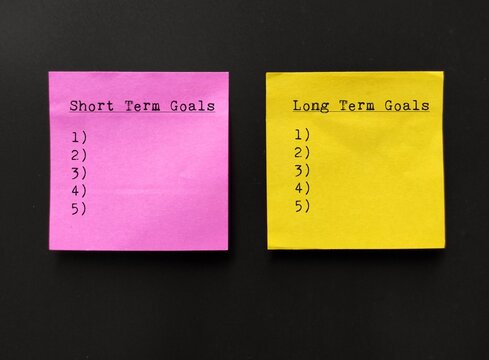 Short Term Goals
1)
2)
3)
4)
5)
Long Term Goals
1)
2)
3)
4)
5)